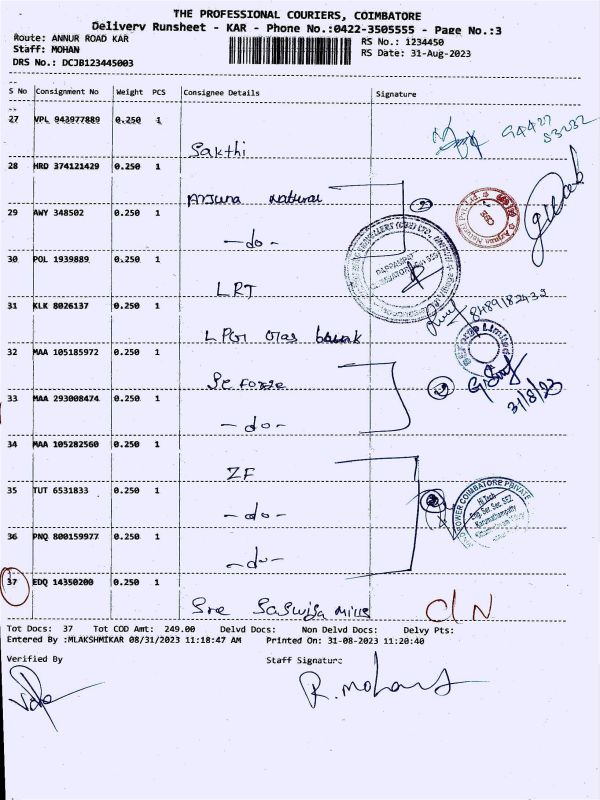 THE PROFESSIONAL COURIERS, COIMBATORE
Delivery Runsheet - KAR - Phone No.:0422-3505555 - Page No.:3
Route: ANNUR ROAD KAR
RS No.: 1234450
Staff: MOHAN
RS Date: 31-Aug-2023
DRS No.: DCJB123445003
S No Consignment No Weight PCS Consignee Details Signature
27 VPL 943977889 0.250 1
Sakthi
94427
53232
28 HRD 374121429 0.250 1
Arjuna Natural
2
29 AWY 348502 0.250 1
-do-
30 POL 1939889 0.250 1
LRT
31 KLK 8026137 0.250 1
8489182432
LPG Gas
32 MAA 105185972 0.250 1
SE Forge
2
31/8/23
33 MAA 293008474 0.250 1
-do-
34 MAA 105282560 0.250 1
ZF
35 TUT 6531833 0.250 1
-do-
Hi Tech
36 PNQ 800159977 0.250 1
-do-
37 EDQ 14350200 0.250 1
Sre Saswija mills
CIN
Tot Docs: 37 Tot COD Amt: 249.00 Delvd Docs: Non Delvd Docs: Delvy Pts:
Entered By :MLAKSHMIKAR 08/31/2023 11:18:47 AM Printed On: 31-08-2023 11:20:40
Verified By Staff Signature
R. Mohan